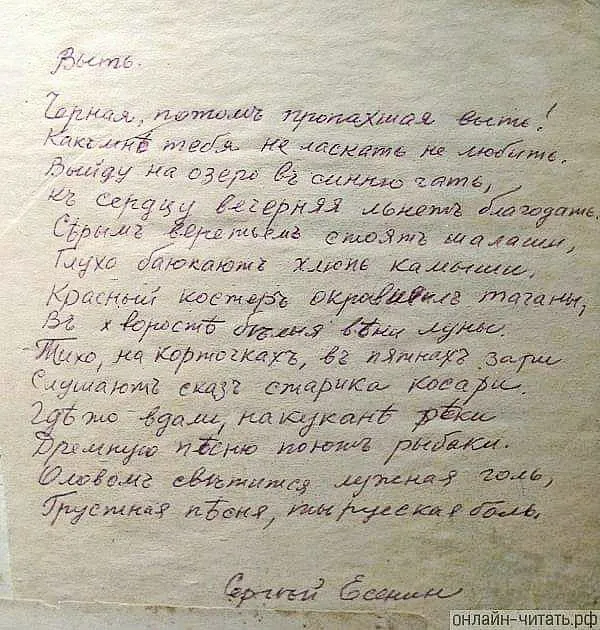 Выть.
Черная, потомъ пропахшая выть!
Какъ мнѣ тебя не ласкать не любить.
Выйду на озеро въ синюю гать,
Къ сердцу вечерняя льнетъ благодать.
Сѣрымъ веретьемъ стоятъ шалаши,
Глухо баюкаютъ хлюпь камыши.
Красный костеръ окровилъ таганы,
Въ хворостѣ бѣлыя вѣки луны.
Тихо, на корточкахъ, въ пятнахъ зари
Слушаютъ сказъ старика косари.
Гдѣ то вдали, на куканѣ рѣки
Дремную пѣсню поютъ рыбаки.
Оловомъ свѣтится лужная голь,
Грустная пѣсня, ты русская боль.
Сергѣй Есенин
онлайн-читать.рф